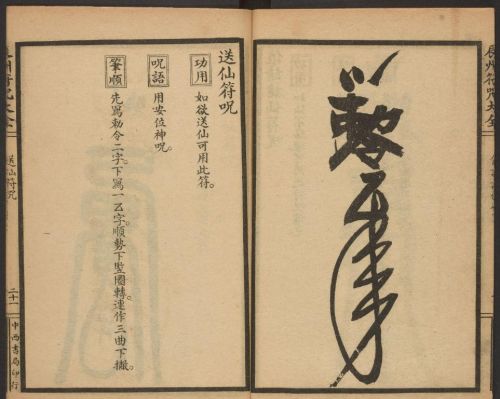 送仙符呪
功用 如欲送仙可用此符。
呪語 用安位神呪。
筆順 先寫勅令二字。下寫一乙字。順勢下竪圈轉。連作三曲下撇。
送仙符呪
二十一
中西書局印行
辰州符咒大全